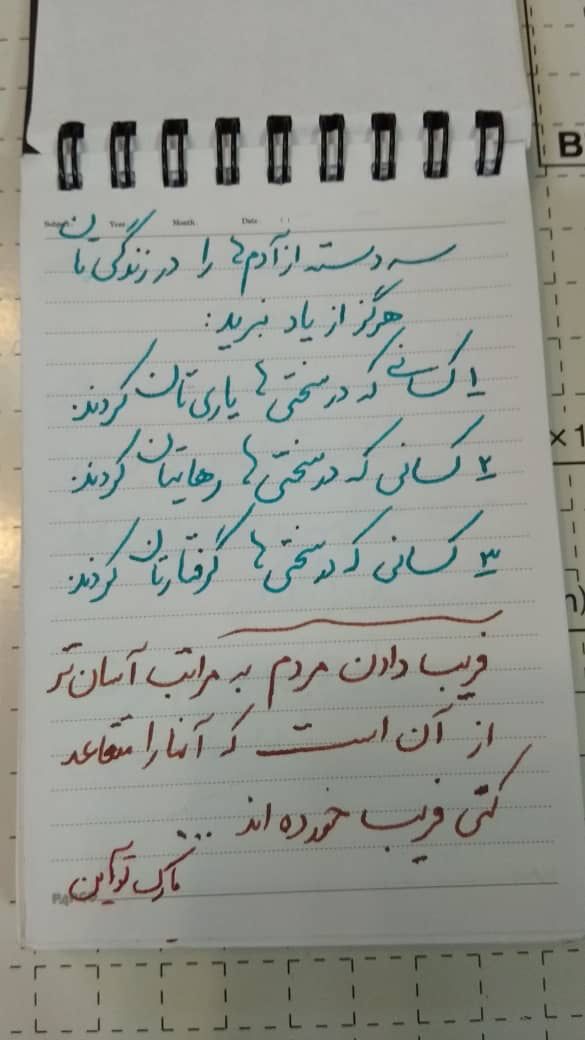 Subject Year Month Date ( )
سه دسته از آدم‌ها را در زندگی تان
هرگز از یاد نبرید:
۱ کسانی که در سختی ها یاری تان کردند.
۲ کسانی که در سختی ها رهایتان کردند.
۳ کسانی که در سختی ها گرفتارتان کردند.
فریب دادن مردم به مراتب آسان تر
از آن است که آنها را متقاعد
کنی فریب خورده اند ...
مارک تواین
B
×1